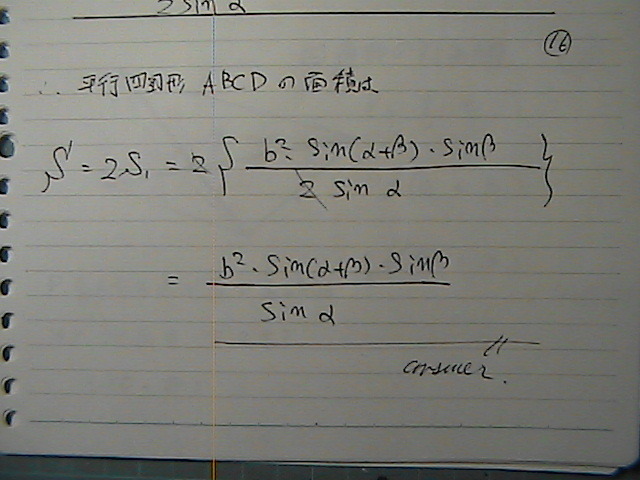 2 sin α
⑯
∴ 平行四辺形 ABCD の面積は
S = 2S₁ = 2 { b²・sin(α+β)・sinβ / 2 sin α }
= b²・sin(α+β)・sinβ / sin α
answer.